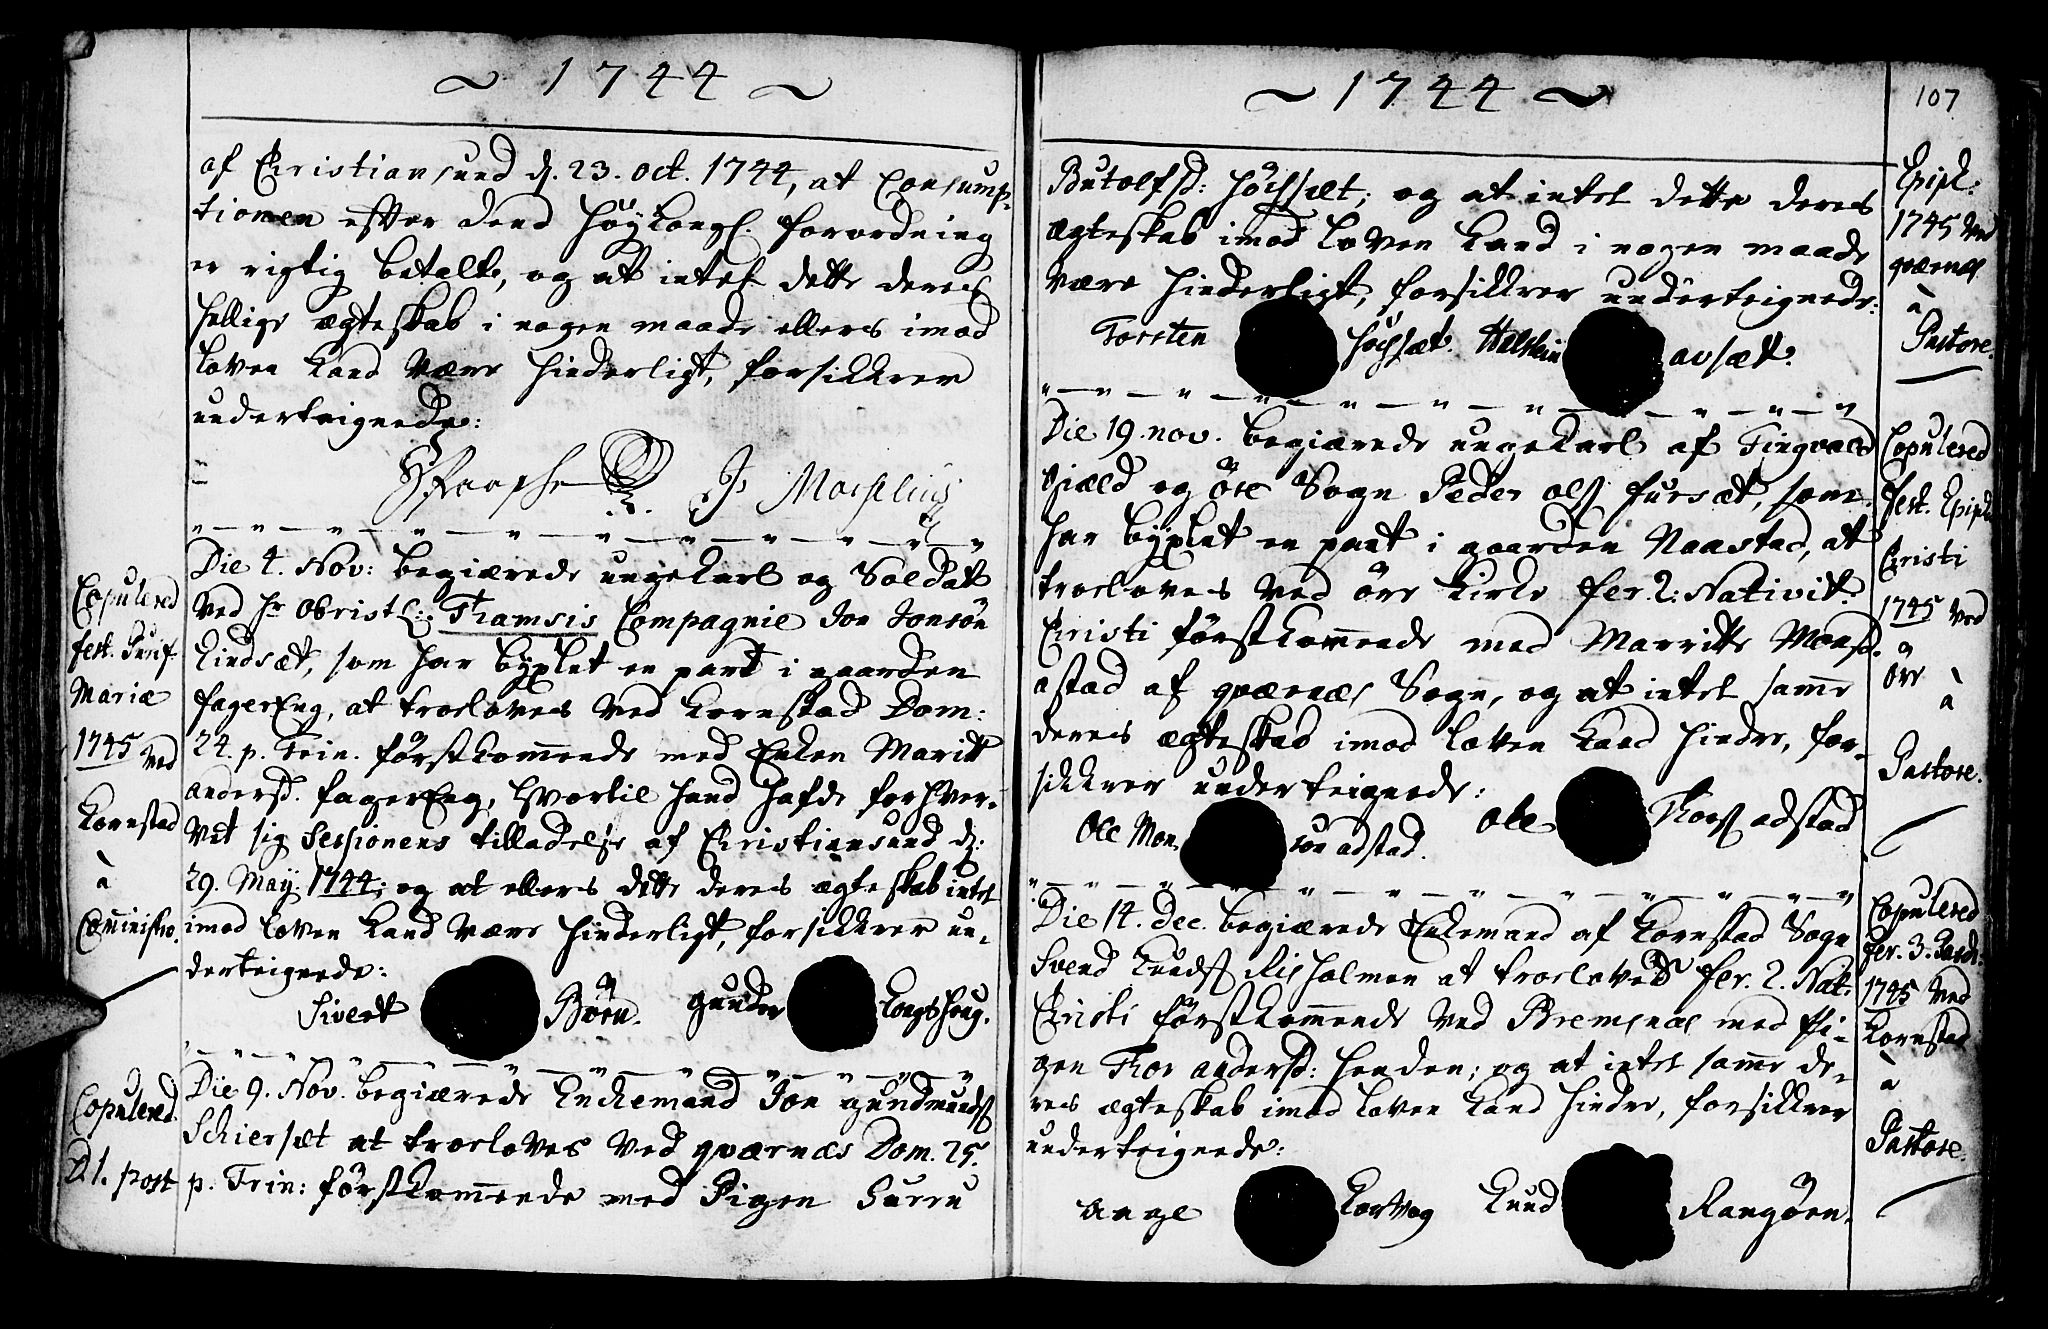 ~ 1744 ~
af Christiansund d. 23. Oct. 1744, at Consump-
tionen efter dend höÿkongl. forordning
er rigtig betalt, og at intet dette deres
hellige ægteskab i nogen maade ellers imod
loven kand være hinderligt, forsikkrer
underteignede:
J. Morselius
Die 4. Nov: begiærede ungekarl og Soldat
ved hr. Obristl: Thamsis Compagnie Jon Jonsön
Kindsæt, som har byxlet en part i gaarden
fagerEng, at troeloves ved Kornstad Dom:
24. p. Trin. förstkommende med Enken Maritt
andersd. fagerEng, hvortil hand hafde forhver-
vet sig Sessionens tilladelse af Christiansund d:
29. Maÿ. 1744; og at ellers dette deres ægteskab intet
imod loven kand være hinderligt, forsikkrer un-
derteignede:
Sivert Böen. gunder Langhoug.
Die 9. Nov. begiærede Enckemand Jon gundmunds
Schiersæt at troeloves ved qværnæs Dom. 25.
p. Trin: förstkommende med Pigen Surru
Copulered
fest. Purif.
Mariæ
1745 ved
Kornstad
à
Comministro.
Copulered.
D 1. post
~ 1744 ~
107
Butolfsd: höchsæt; og at intet dette deres
ægteskab imod loven kand i nogen maade
være hinderligt, forsikkrer underteignede:
Torsten höchsæt. Halstein avsæt.
Die 19. nov. begiærede ungekarl af Tingvald
gield og öre Sogn Peder Ols. fursæt, som
har byxlet en part i gaarden Naastad, at
troeloves ved öre kirke fer. 2: Nativit.
Christi förstkommende med Marritte Monsd.
astad af qværnæs Sogn, og at intet samme
deres ægteskab imod loven kand hindre, for-
sikkrer underteignede:
Ole Mon sön adstad. Ole Thors. adstad
Die 14. dec. begiærede Enkemand af Kornstad Sogn
Svend Knuds. Risholmen at troeloves fer. 2. Nat:
Christi förstkommende ved Bremsnæs med Pi-
gen Thor andersd: henden; og at intet samme de-
res ægteskab imod loven kand hindre, forsikkrer
underteignede:
Aage Korvog Knud Rangöen.
Epiph:
1745 ved
qværnæs
à
Pastore.
Copulered
fest. Epiph.
Christi
1745 ved
öre
à
Pastore.
Copulered
fer. 3. Pasch:
1745 ved
Kornstad
à
Pastore.